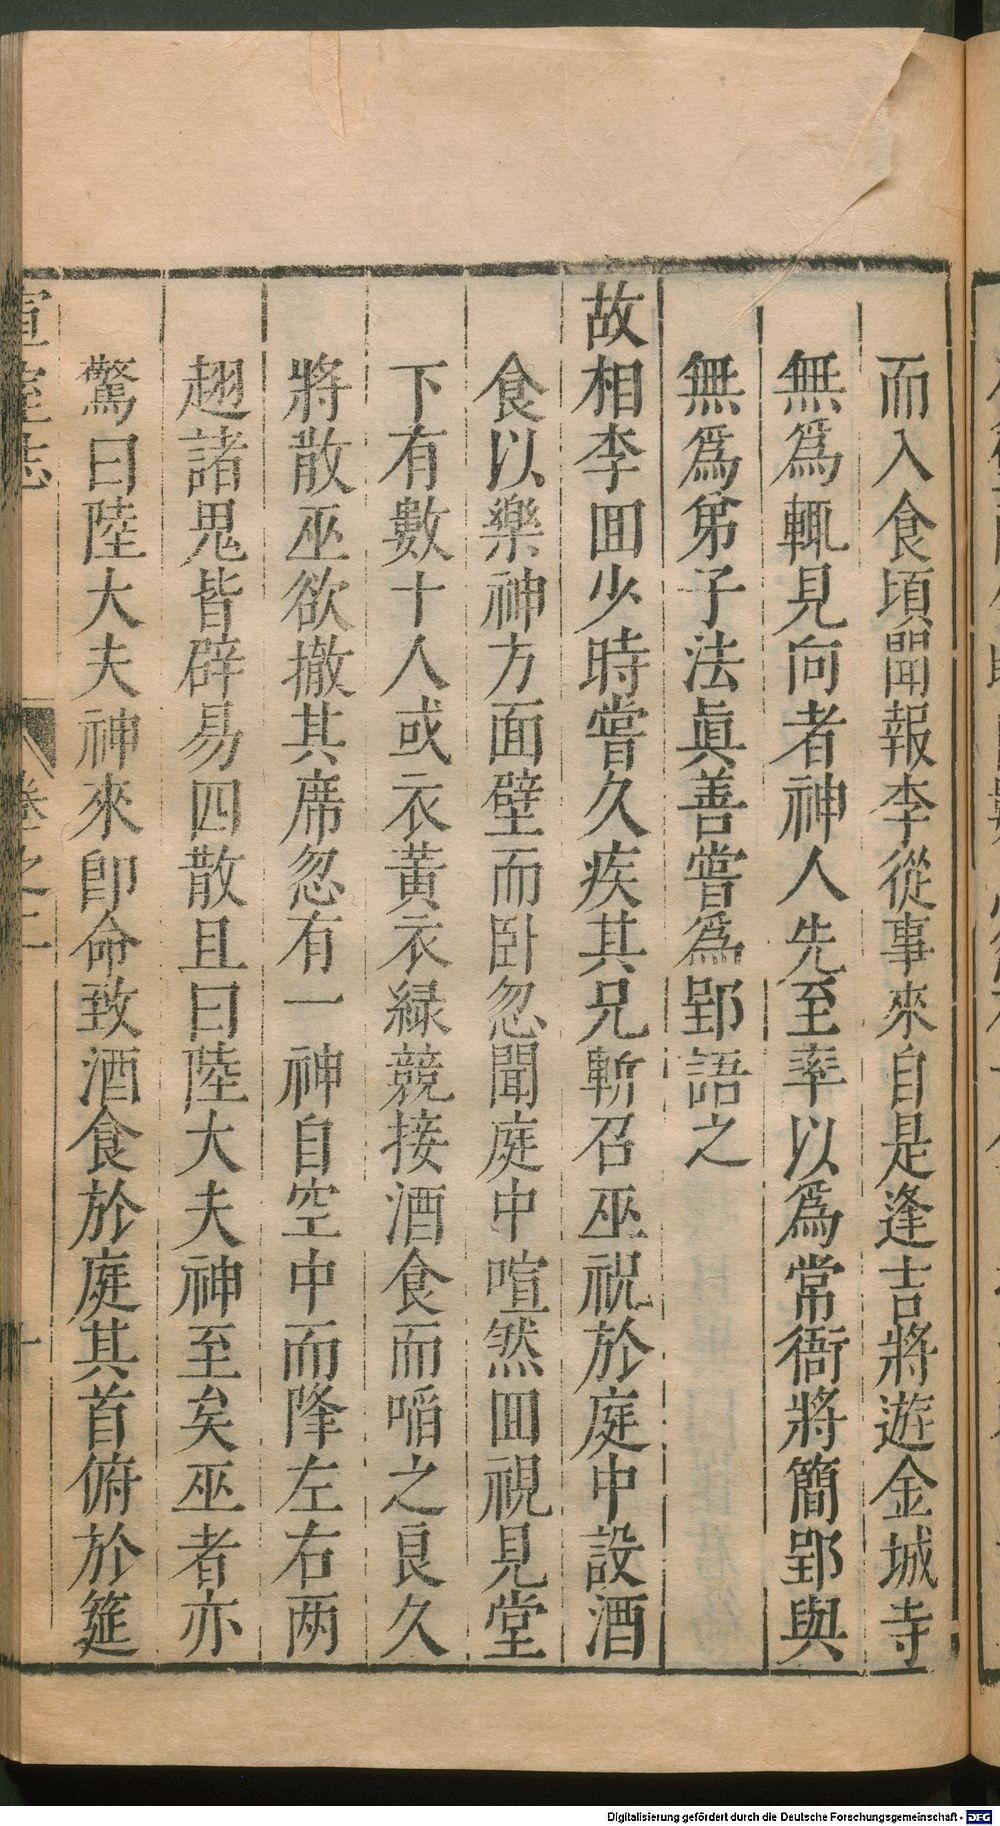 而入食頃聞報李從事來自是逢吉將遊金城寺
無爲輒見向者神人先至率以爲常衙將簡郢與
無爲弟子法眞善嘗爲郢語之
故相李囬少時嘗久疾其兄斬召巫祝於庭中設酒
食以樂神方面壁而卧忽聞庭中喧然囬視見堂
下有數十人或衣黃衣緑競接酒食而啗之良久
將散巫欲撤其席忽有一神自空中而降左右兩
翅諸鬼皆辟易四散且曰陸大夫神至矣巫者亦
驚曰陸大夫神來卽命致酒食於庭其首俯於筵
宣室志 卷之二 十
Digitalisierung gefördert durch die Deutsche Forschungsgemeinschaft - DFG